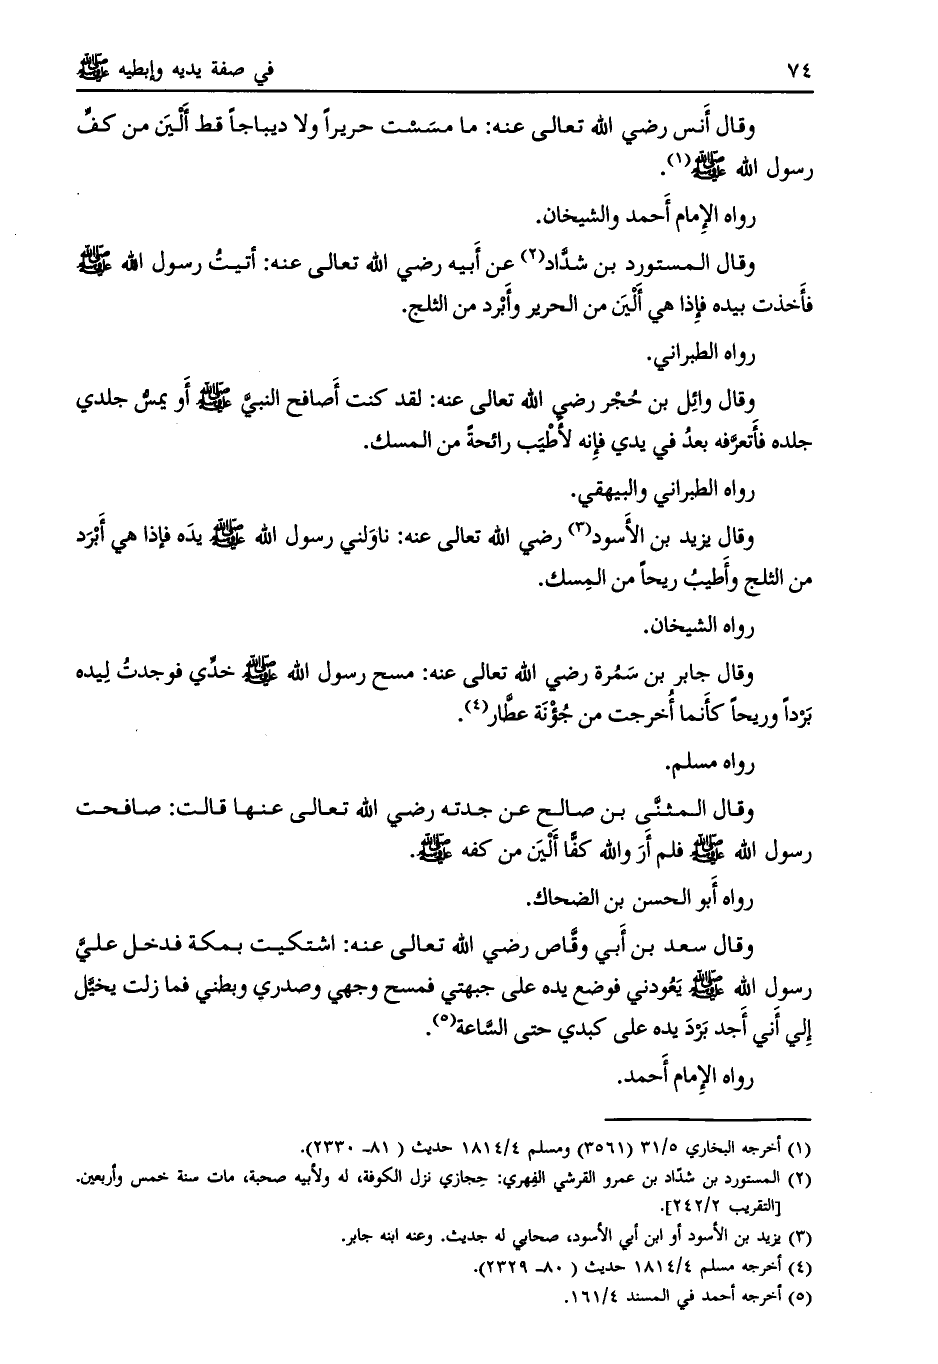 ٧٤ في صفة يديه وإبطيه ﷺ
وقال أَنس رضي الله تعالى عنه: ما مسَسْت حريراً ولا ديباجاً قط أَلْيَن من كفِّ
رسول الله ﷺ(١).
رواه الإِمام أَحمد والشيخان.
وقال المستورد بن شدَّاد(٢) عن أَبيه رضي الله تعالى عنه: أتيتُ رسول الله ﷺ
فأَخذت بيده فإِذا هي أَلْيَن من الحرير وأَبْرد من الثلج.
رواه الطبراني.
وقال وائِل بن حُجْر رضي الله تعالى عنه: لقد كنت أَصافح النبيَّ ﷺ أَو يمسُّ جلدي
جلده فأَتعرَّفه بعدُ في يدي فإِنه لأَطْيَب رائحةً من المسك.
رواه الطبراني والبيهقي.
وقال يزيد بن الأَسود(٣) رضي الله تعالى عنه: ناوَلني رسول الله ﷺ يدَه فإذا هي أَبْرَد
من الثلج وأَطيبُ ريحاً من المِسك.
رواه الشيخان.
وقال جابر بن سَمُرة رضي الله تعالى عنه: مسح رسول الله ﷺ خدِّي فوجدتُ لِيده
بَرْداً وريحاً كأَنما أُخرجت من جُؤْنَة عطَّار(٤).
رواه مسلم.
وقال المثنَّى بن صالح عن جدته رضي الله تعالى عنها قالت: صافحت
رسول الله ﷺ فلم أَرَ والله كفًّا أَلْيَن من كفه ﷺ.
رواه أَبو الحسن بن الضحاك.
وقال سعد بن أَبي وقَّاص رضي الله تعالى عنه: اشتكيت بمكة فدخل عليَّ
رسول الله ﷺ يَعُودني فوضع يده على جبهتي فمسح وجهي وصدري وبطني فما زلت يخيَّل
إِلي أَني أَجد بَرْدَ يده على كبدي حتى السَّاعة(٥).
رواه الإِمام أَحمد.
(١) أخرجه البخاري ٣١/٥ (٣٥٦١) ومسلم ١٨١٤/٤ حديث ( ٨١ـ ٢٣٣٠).
(٢) المستورد بن شدّاد بن عمرو القرشي الفِهري: حِجازي نزل الكوفة، له ولأبيه صحبة، مات سنة خمس وأربعين.
[التقريب ٢٤٢/٢].
(٣) يزيد بن الأسود أو ابن أبي الأسود، صحابي له حديث. وعنه ابنه جابر.
(٤) أخرجه مسلم ١٨١٤/٤ حديث ( ٨٠ـ ٢٣٢٩).
(٥) أخرجه أحمد في المسند ١٦١/٤.